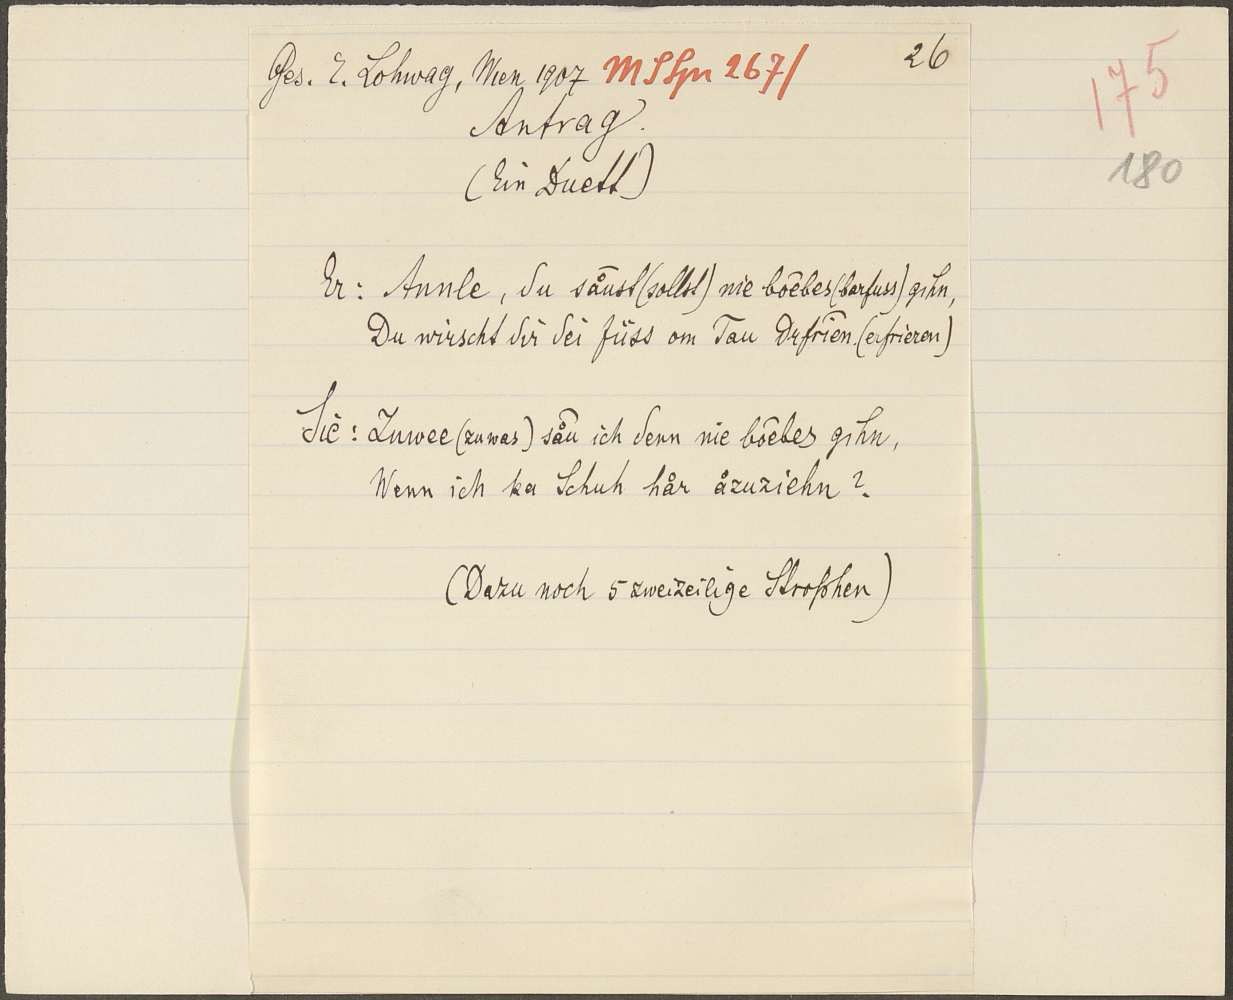 Ges. E. Lohwag, Wien 1907 267/ 26
175
180
Antrag.
(Ein Duett)
Er: Annle, du såust (sollst) nie bōebes (barfuss) gihn,
Du wirscht dir dei füss om Tau drfrīen. (erfrieren)
Sie: Zuwee (zuwas) såu ich denn nie bōebes gihn,
Wenn ich ka Schuh hår åzuziehn?
(Dazu noch 5 zweizeilige Strophen)